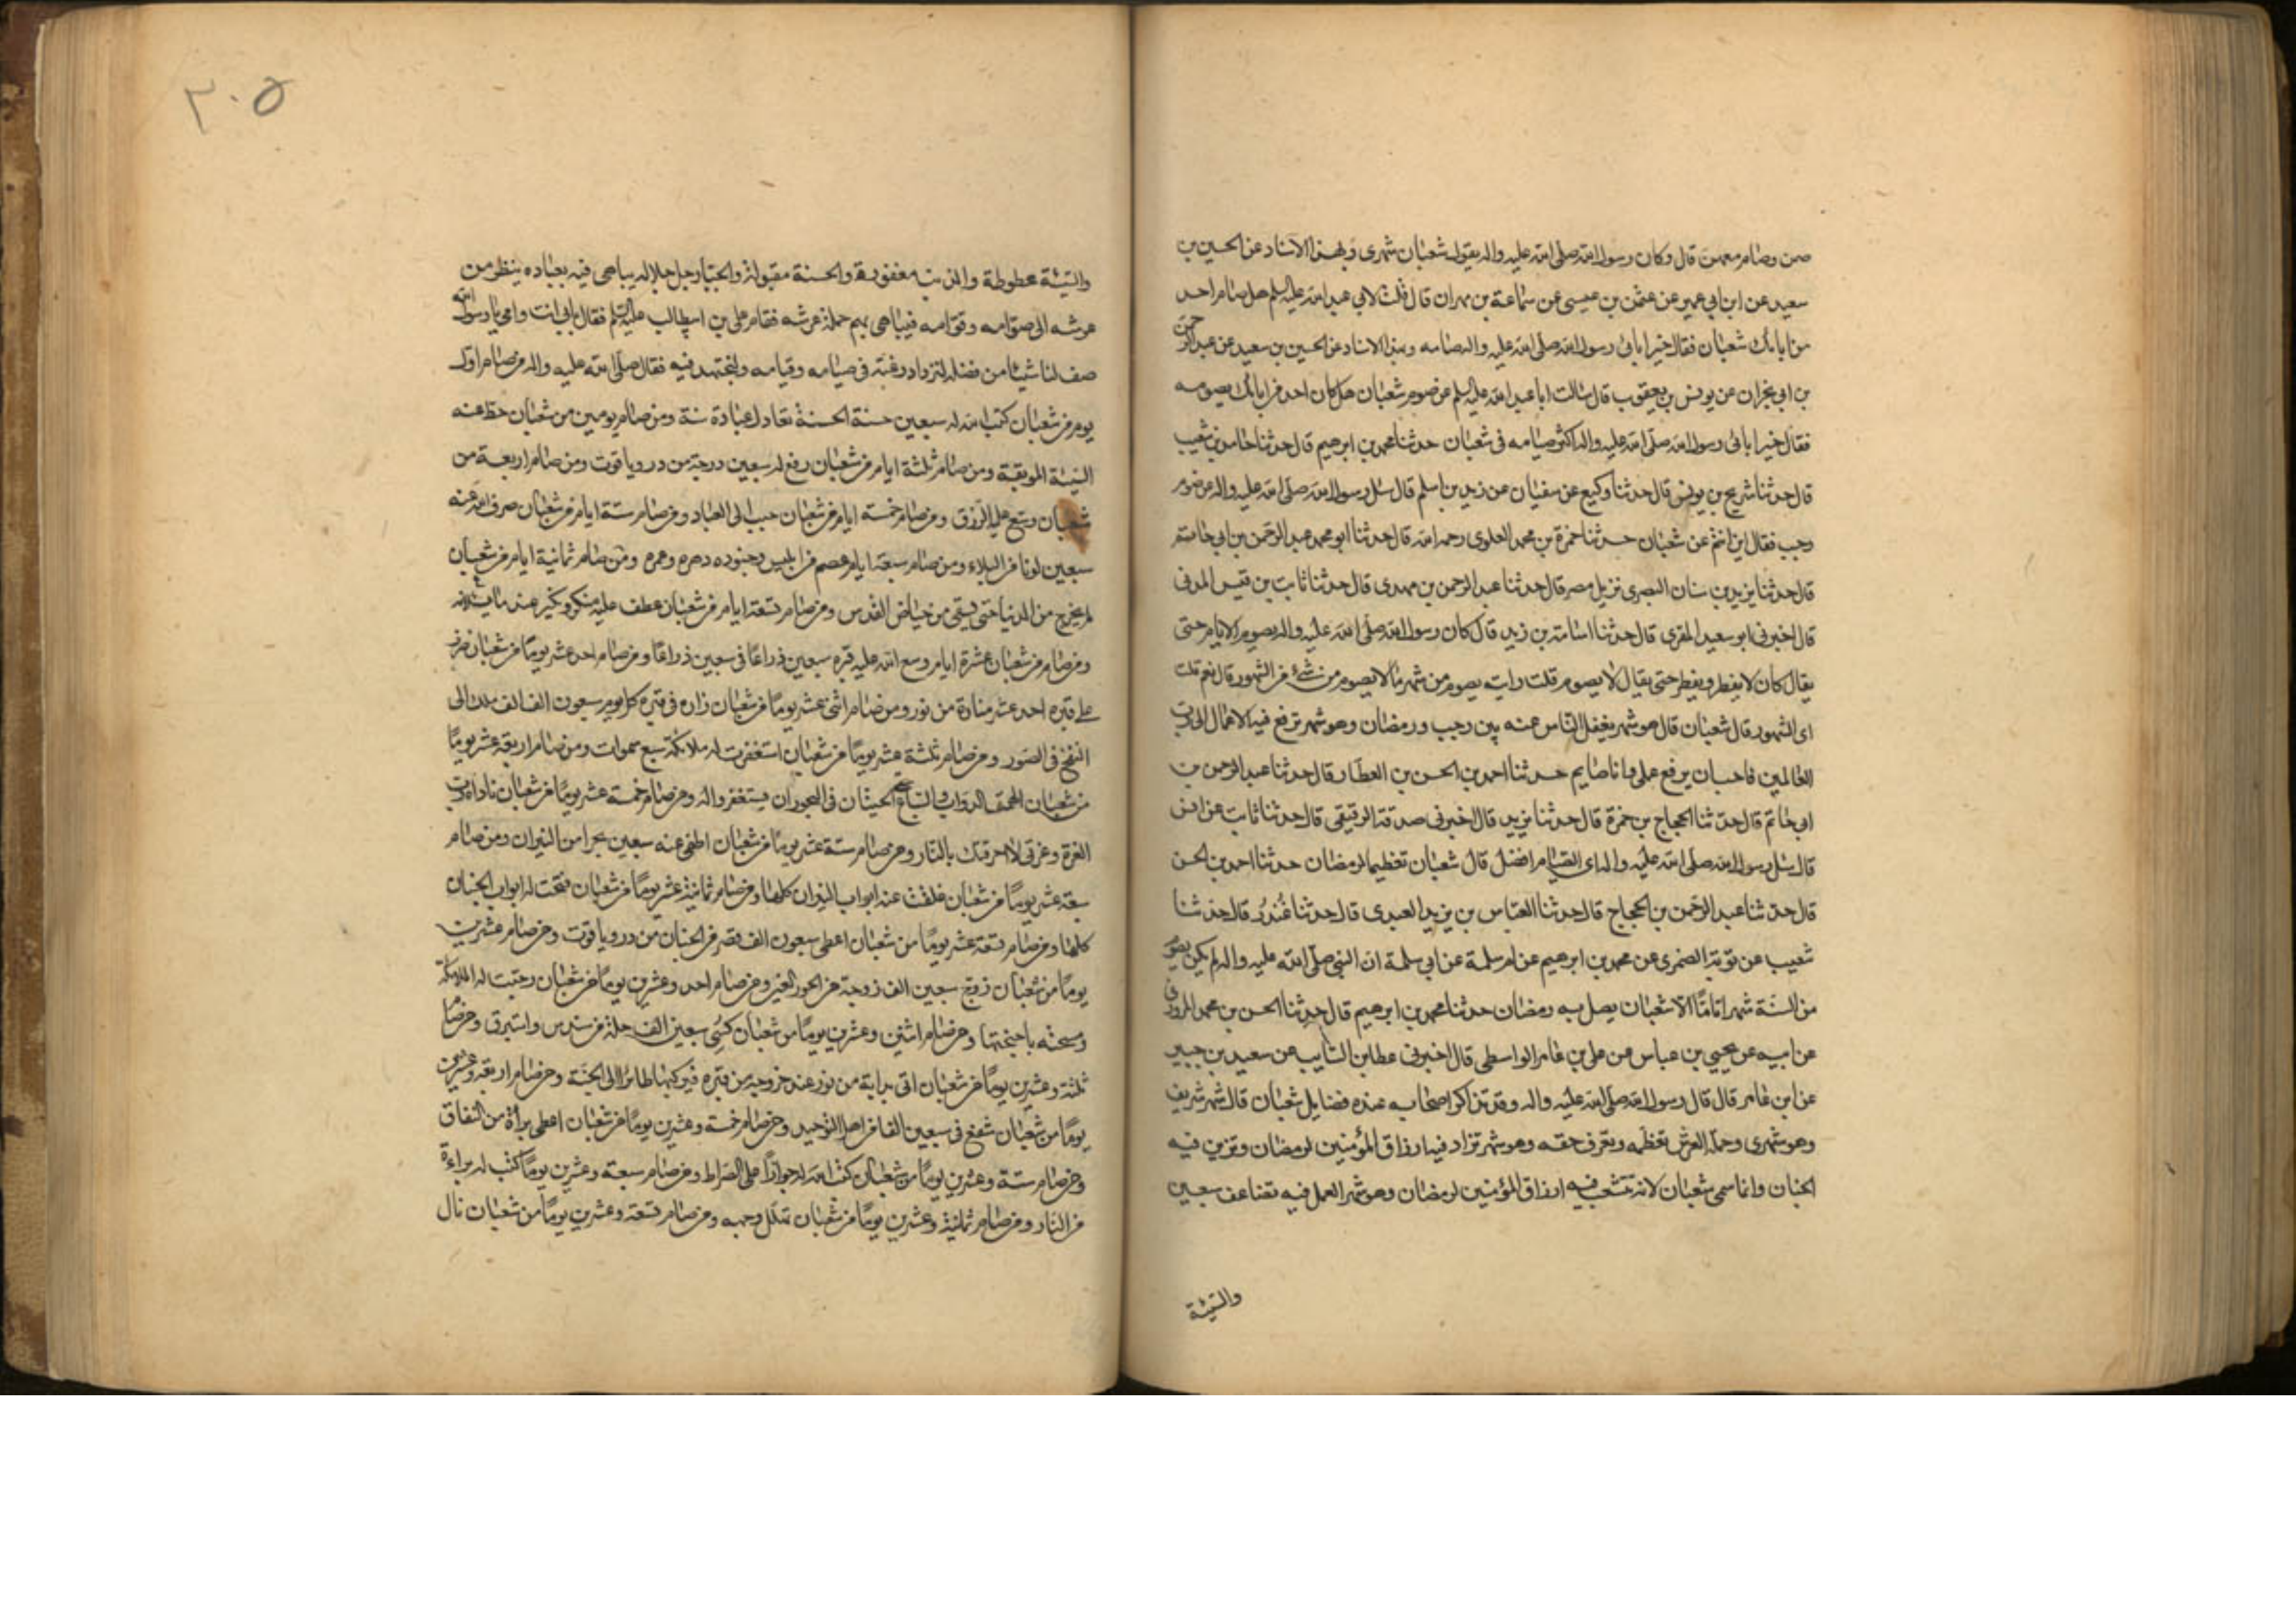 صمن وصام معهن قال وكان رسول الله صلى الله عليه واله يقول شعبان شهري وبهذا الاسناد عن الحسين بن
سعيد عن ابن ابي عمير عن عثمن بن عيسى عن سماعة بن مهران قال قلت لابي عبد الله عليه السلم هل صام احد
من ابابك شعبان فقال خير ابائي رسول الله صلى الله عليه واله صامه وبهذا الاسناد عن الحسين بن سعيد عن عبد الرحمن
بن ابي نجران عن يونس بن يعقوب قال سالت ابا عبد الله عليه السلم عن صوم شعبان هل كان احد من ابائك يصومه
فقال خير ابائي رسول الله صلى الله عليه واله اكثر صيامه في شعبان حدثنا محمد بن ابرهيم قال حدثنا حامد بن شعيب
قال حدثنا شريح بن يونس قال حدثنا وكيع عن سفيان عن زيد بن اسلم قال سئل رسول الله صلى الله عليه واله عن صوم
رجب فقال اين انتم عن شعبان حدثنا حمزة بن محمد العلوي رحمه الله قال حدثنا ابو محمد عبد الرحمن بن ابي حاتم
قال حدثنا يزيد بن سنان البصري نزيل مصر قال حدثنا عبد الرحمن بن مهدي قال حدثنا ثابت بن قيس المدني
قال اخبرني ابو سعيد المقري قال حدثنا اسامة بن زيد قال كان رسول الله صلى الله عليه واله يصوم الايام حتى
يقال كان لا يفطر ويفطر حتى يقال لا يصوم قلت رايته يصوم من شهر ما لا يصوم من شئ من الشهور قال نعم قلت
اي الشهور قال شعبان قال هو شهر يغفل الناس عنه بين رجب ورمضان وهو شهر ترفع فيه الاعمال الى رب
العالمين فاحب ان يرفع عملي وانا صايم حدثنا احمد بن الحسن بن العطار قال حدثنا عبد الرحمن بن
ابي حاتم قال حدثنا الحجاج بن حمزة قال حدثنا يزيد قال اخبرني صدقة الدقيقي قال حدثنا ثابت عن انس
قال سئل رسول الله صلى الله عليه واله اي الصيام افضل قال شعبان تعظيما لرمضان حدثنا احمد بن الحسن
قال حدثنا عبد الرحمن بن الحجاج قال حدثنا العباس بن يزيد العبدي قال حدثنا غندر قال حدثنا
شعيب عن توبة العنبري عن محمد بن ابرهيم عن ام سلمة عن ابي سلمة ان النبي صلى الله عليه واله لم يكن يصوم
من السنة شهرا تاما الا شعبان يصل به رمضان حدثنا محمد بن ابرهيم قال حدثنا الحسن بن محمد المروزي
عن ابيه عن يحيى بن عباس عن علي بن عامر الواسطي قال اخبرني عطا بن السايب عن سعيد بن جبير
عن ابن عامر قال قال رسول الله صلى الله عليه واله وقد تذاكر اصحابه عنده فضايل شعبان قال شهر شريف
وهو شهري وحملة العرش تعظمه وتعرف حقه وهو شهر تزاد فيه ارزاق المؤمنين لرمضان وتزين فيه
الجنان وانما سمي شعبان لانه تتشعب فيه ارزاق المؤمنين لرمضان وهو شهر العمل فيه تضاعف سبعين
والسيئة
٣٠٥
والسيئة محطوطة والذنب مغفورة والحسنة مقبولة والجبار جل جلاله يباهي فيه بعباده ينظر من
عرشه الى صوامه وقوامه فيباهي بهم حملة عرشه فقام علي بن ابيطالب عليه السلم فقال بابي انت وامي يا رسول الله
صف لنا شيئا من فضله لنزداد رغبة في صيامه وقيامه ولنجتهد فيه فقال صلى الله عليه واله من صام اول
يوم من شعبان كتب الله له سبعين حسنة الحسنة تعادل عبادة سنة ومن صام يومين من شعبان حط عنه
السيئة الموبقة ومن صام ثلثة ايام من شعبان رفع له سبعين درجة من در وياقوت ومن صام اربعة من
شعبان وسع عليه الرزق ومن صام خمسة ايام من شعبان حبب الى العباد ومن صام ستة ايام من شعبان صرف الله عنه
سبعين لونا من البلاء ومن صام سبعة ايام عصم من ابليس وجنوده دهره وعمره ومن صام ثمانية ايام من شعبان
لم يخرج من الدنيا حتى يسقى من حياض القدس ومن صام تسعة ايام من شعبان عطف عليه منكر ونكير عند ما يسئلانه
ومن صام من شعبان عشرة ايام وسع الله عليه قبره سبعين ذراعا في سبعين ذراعا ومن صام احد عشر يوما من شعبان ضرب
على قبره احد عشر منارة من نور ومن صام اثني عشر يوما من شعبان زاره في قبره كل يوم سبعون الف الف ملك الى
النفخ في الصور ومن صام ثلثة عشر يوما من شعبان استغفرت له ملائكة سبع سموات ومن صام اربعة عشر يوما
من شعبان الهمت الدواب والسباع حتى الحيتان في البحور ان يستغفروا له ومن صام خمسة عشر يوما من شعبان ناداه رب
العزة وعزتي لا احرقتك بالنار ومن صام ستة عشر يوما من شعبان اطفئ عنه سبعين بحرا من النيران ومن صام
سبعة عشر يوما من شعبان غلقت عنه ابواب النيران كلها ومن صام ثمانية عشر يوما من شعبان فتحت له ابواب الجنان
كلها ومن صام تسعة عشر يوما من شعبان اعطى سبعون الف قصر من الجنان من در وياقوت ومن صام عشرين
يوما من شعبان زوج سبعين الف زوجة من الحور العين ومن صام احد وعشرين يوما من شعبان رحبت له الملائكة
ومسحته باجنحتها ومن صام اثنين وعشرين يوما من شعبان كسي سبعين الف حلة من سندس واستبرق ومن صام
ثلثة وعشرين يوما من شعبان اتي بدابة من نور عند خروجه من قبره فيركبها طائرا الى الجنة ومن صام اربعة وعشرين
يوما من شعبان شفع في سبعين الفا من اهل التوحيد ومن صام خمسة وعشرين يوما من شعبان اعطى براة من النفاق
ومن صام ستة وعشرين يوما من شعبان كتب الله له جوازا على الصراط ومن صام سبعة وعشرين يوما كتب له براءة
من النار ومن صام ثمانية وعشرين يوما من شعبان تهلل وجهه ومن صام تسعة وعشرين يوما من شعبان نال